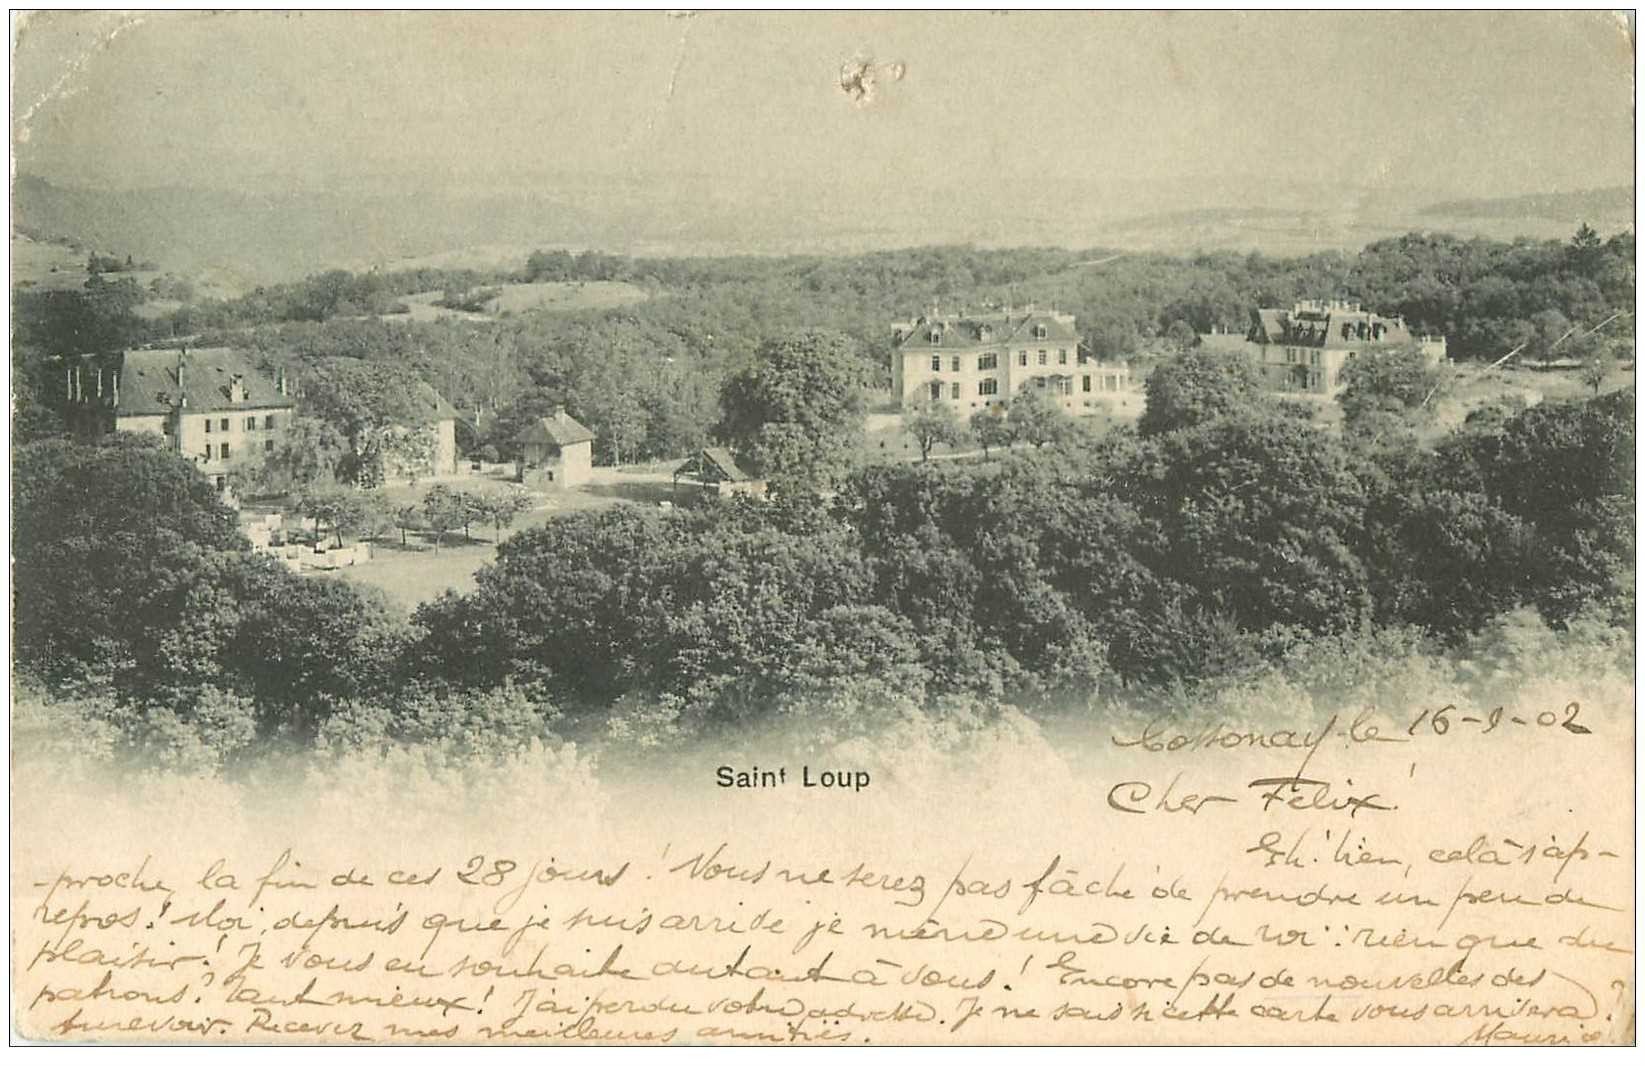 Saint Loup
Cossonay-le 16-9-02
Cher Félix!
Eh! bien, celà s'ap-
-proche, la fin de ces 28 jours! Vous ne serez pas fâché de prendre un peu de
repos! Moi, depuis que je suis arrivé je mène une vie de roi: rien que du
plaisir! Je vous en souhaite autant à vous! Encore pas de nouvelles des
patrons? Tant mieux! J'ai perdu votre adresse. Je ne sais si cette carte vous arrivera?
Aurevoir. Recevez mes meilleures amitiés.
Maurice